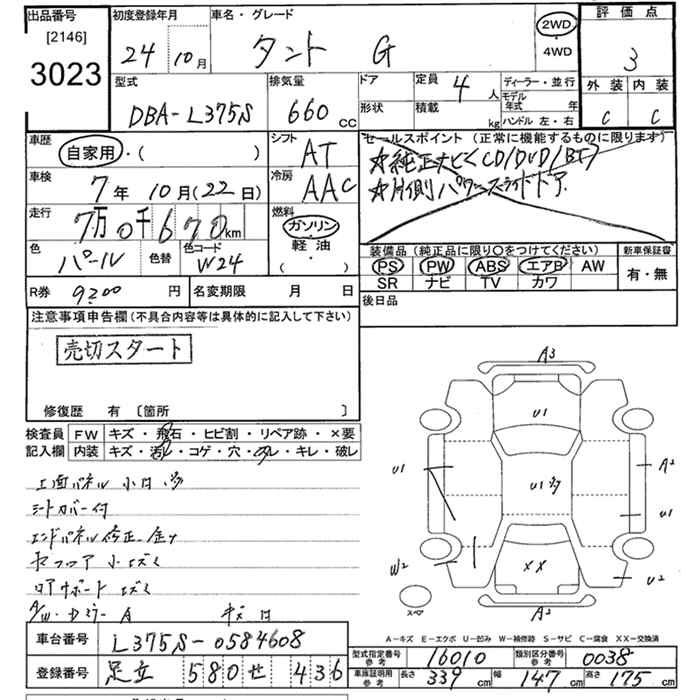 出品番号 [2146] 3023
初度登録年月 24年 10月
車名・グレード タント G
2WD・4WD
評価点 3
外装 内装
C C
型式 DBA-L375S
排気量 660 CC
ドア 形状
定員 4人
積載 kg
ディーラー・並行
モデル年式 年
ハンドル 左・右
車歴 自家用・( )
シフト AT
車検 7年 10月(22日)
冷房 AAC
走行 7万0千670km
燃料 ガソリン・軽油・( )
色 パール 色替
色コード W24
セールスポイント (正常に機能するものに限ります)
☆純正ナビ(CD/DVD/BT)
☆片側パワースライドドア
装備品 (純正品に限り〇をつけてください)
PS PW ABS エアB AW
SR ナビ TV カワ
新車保証書 有・無
R券 9200円 名変期限 月 日
後日品
注意事項申告欄(不具合内容等は具体的に記入して下さい)
売切スタート
修復歴 有 〔箇所 〕
検査員記入欄
FW キズ・飛石・ヒビ割・リペア跡・×要
内装 キズ・汚れ・コゲ・穴・スレ・キレ・破レ
シートカバー付
エンドパネル修正
リアサポート
A3
U1
U1
A2
U1
W2
XX
U2
A2
A-キズ E-エクボ U-凹み W-補修跡 S-サビ C-腐食 XX-交換済
車台番号 L375S-0584608
登録番号 足立 580 せ 436
型式指定番号 参考 16010 類別区分番号 参考 0038
車庫証明用 参考 長さ 339cm 幅 147cm 高さ 175cm